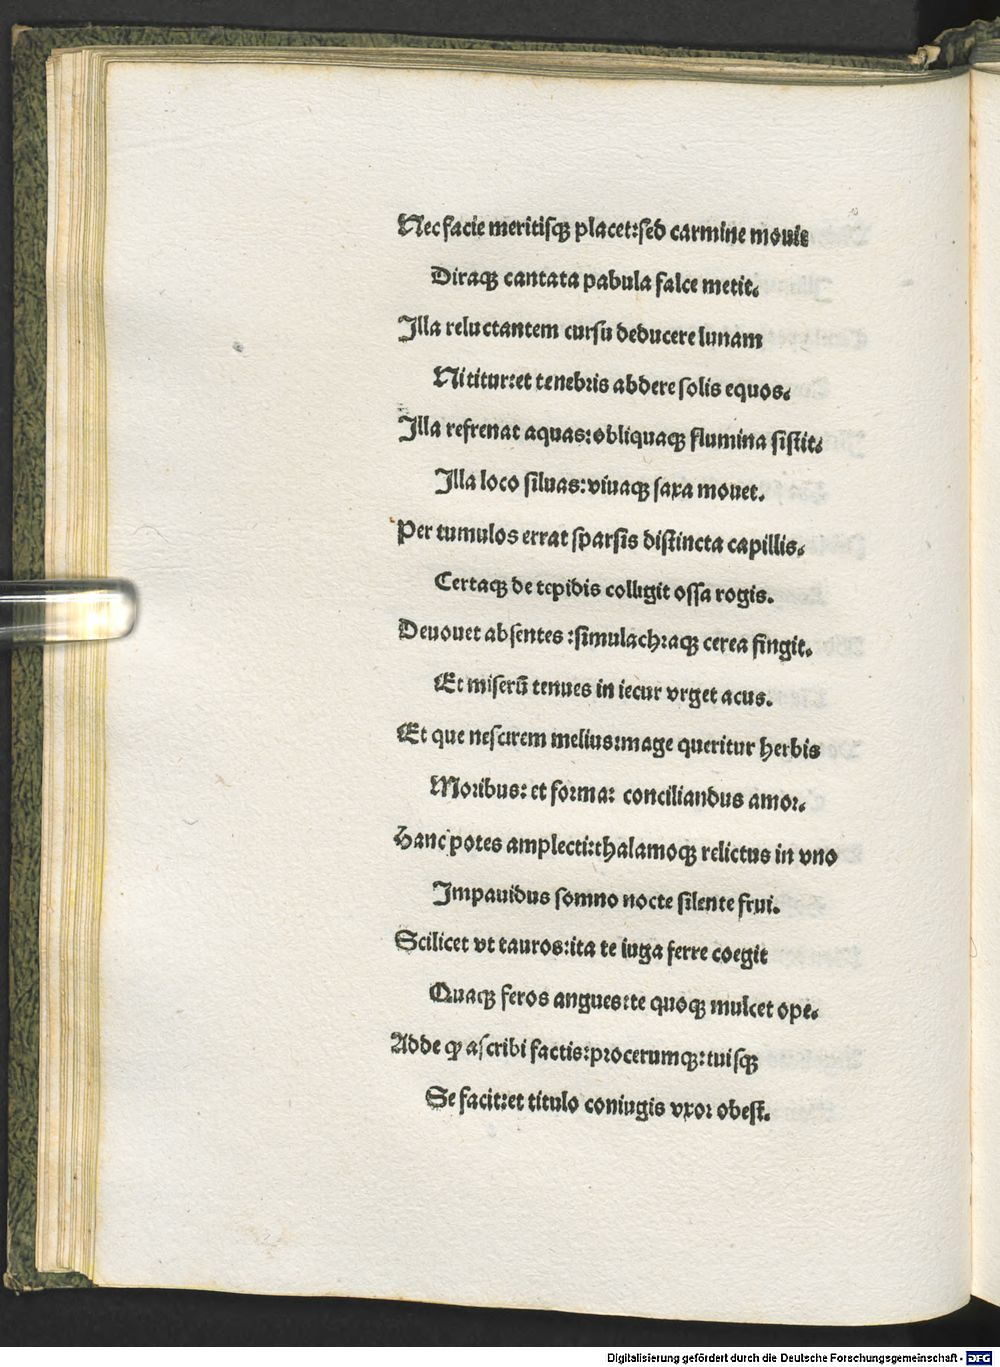 Nec facie meritisqꝫ placet:sed carmine mouit
Diraqꝫ cantata pabula falce metit.
Illa reluctantem cursu deducere lunam
Nititur:et tenebris abdere solis equos.
Illa refrenat aquas:obliquaqꝫ flumina sistit.
Illa loco siluas:viuaqꝫ saxa mouet.
Per tumulos errat sparsis distincta capillis.
Certaqꝫ de tepidis colligit ossa rogis.
Deuouet absentes :simulachraqꝫ cerea fingit.
Et miserū tenues in iecur vrget acus.
Et que nescirem melius:mage queritur herbis
Moribus: et forma: conciliandus amor.
Hanc potes amplecti:thalamoqꝫ relictus in vno
Impauidus somno nocte silente frui.
Scilicet vt tauros:ita te iuga ferre coegit
Quaqꝫ feros angues:te quoqꝫ mulcet ope.
Adde ꝙ ascribi factis:procerumqꝫ:tuisqꝫ
Se facit:et titulo coniugis vxor obest.
Digitalisierung gefördert durch die Deutsche Forschungsgemeinschaft - DFG